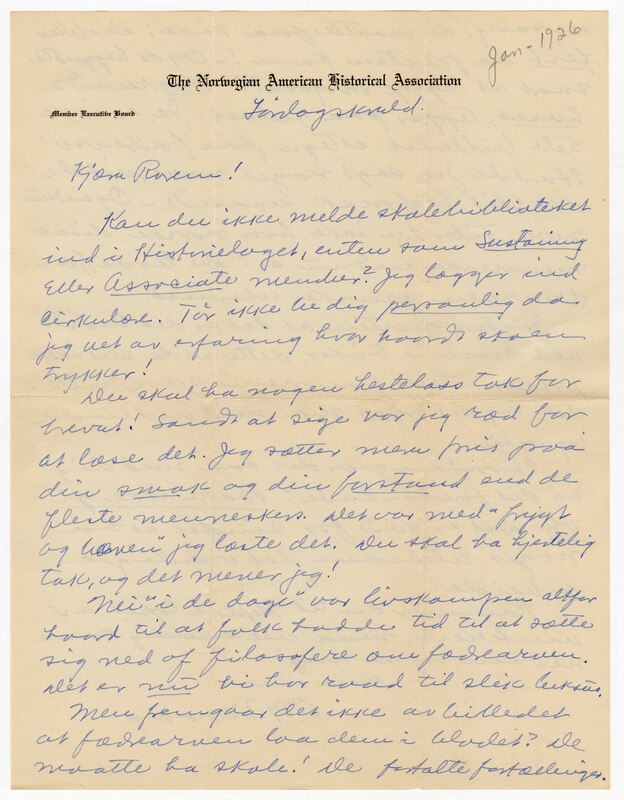 Jan - 1926
The Norwegian American Historical Association
Member Executive Board
Lördagskveld.
Kjære Rovern!
Kan du ikke melde skolebiblioteket
ind i Historielaget, enten som Sustaining
Eller Associate member? Jeg lægger ind
Cirkulære. Tör ikke be dig personlig da
jeg vet av erfaring hvor haardt skoen
trykker!
Du skal ha nogen hestelass tak for
brevet! Sandt at sige var jeg ræd for
at læse det. Jeg sætter mere pris paa
din smak og din forstand end de
fleste menneskers. Det var med "frygt
og bæven" jeg læste det. Du skal ha hjertelig
tak, og det mener jeg!
Nei "i de dage" var livskampen altfor
haard til at folk hadde tid til at sætte
sig ned of filosofere om fædrearven.
Det er nu vi har raad til slik luksus.
Men fremgaar det ikke av billedet
at fædrearven laa dem i blodet? De
maatte ha skole! De fortalte fortællinger.